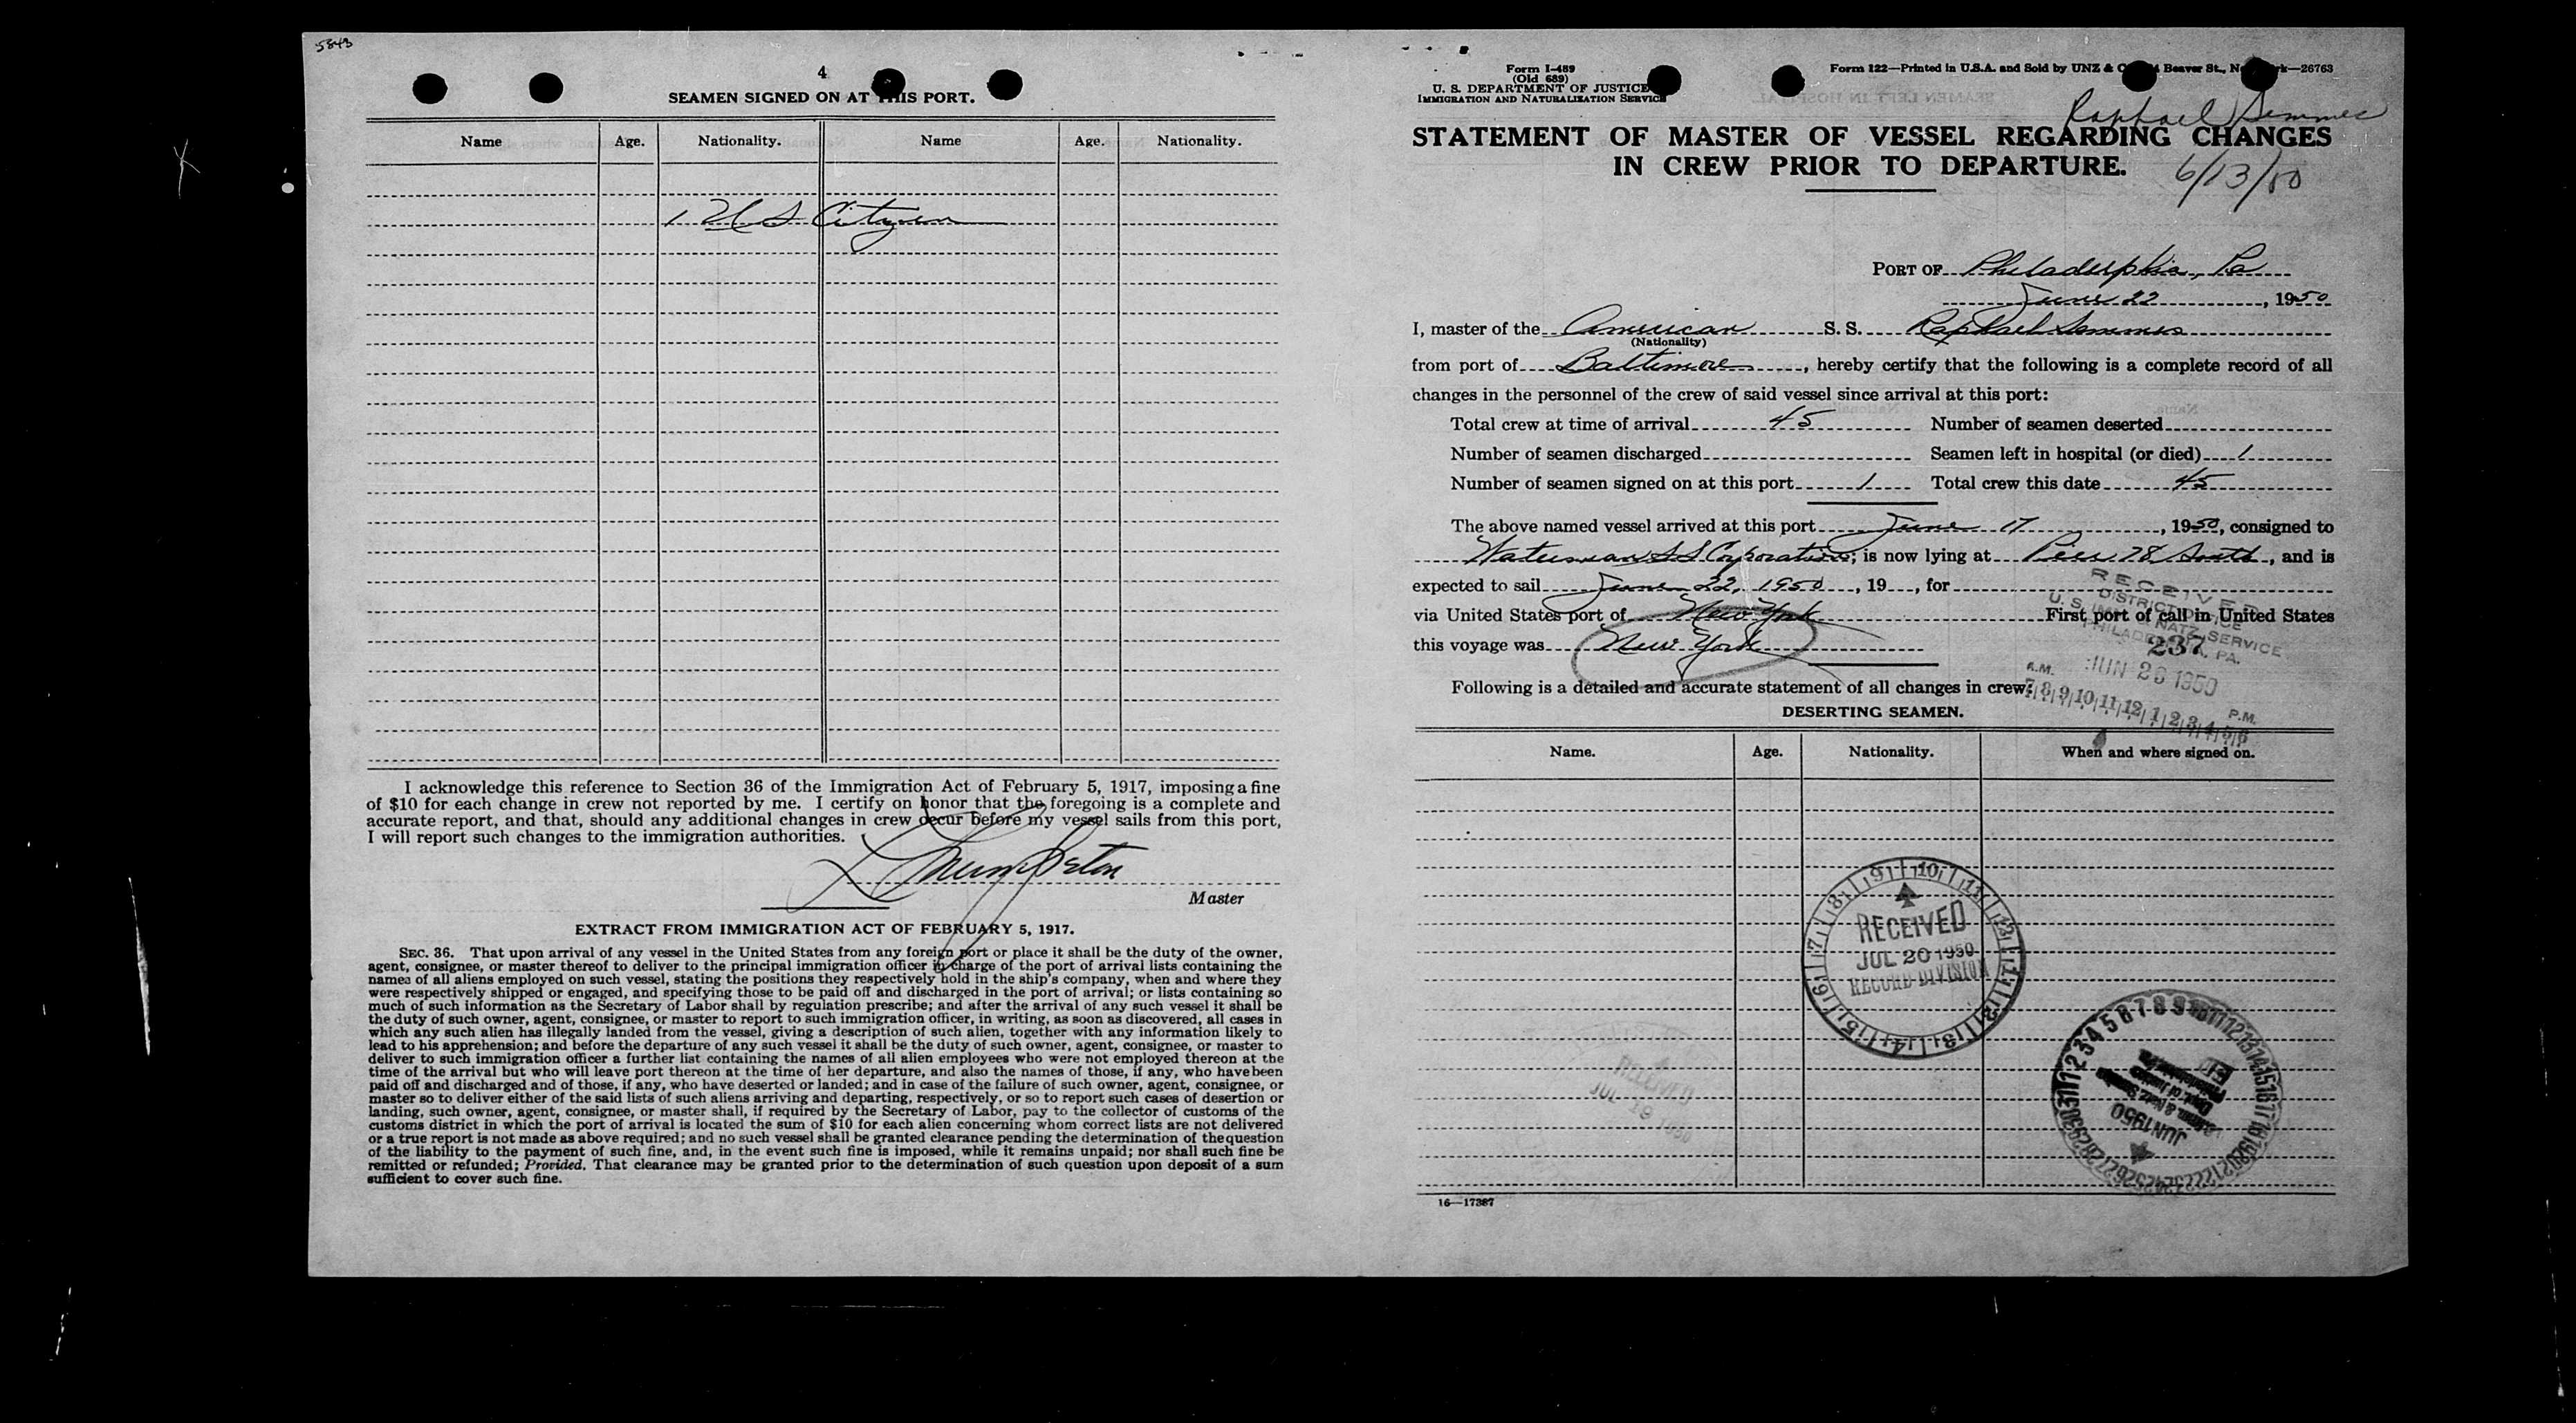 5843
4
SEAMEN SIGNED ON AT THIS PORT.
Name Age. Nationality. Name Age. Nationality.
1 U S Citizen
I acknowledge this reference to Section 36 of the Immigration Act of February 5, 1917, imposing a fine
of $10 for each change in crew not reported by me. I certify on honor that the foregoing is a complete and
accurate report, and that, should any additional changes in crew occur before my vessel sails from this port,
I will report such changes to the immigration authorities.
Master
EXTRACT FROM IMMIGRATION ACT OF FEBRUARY 5, 1917.
SEC. 36. That upon arrival of any vessel in the United States from any foreign port or place it shall be the duty of the owner,
agent, consignee, or master thereof to deliver to the principal immigration officer in charge of the port of arrival lists containing the
names of all aliens employed on such vessel, stating the positions they respectively hold in the ship's company, when and where they
were respectively shipped or engaged, and specifying those to be paid off and discharged in the port of arrival; or lists containing so
much of such information as the Secretary of Labor shall by regulation prescribe; and after the arrival of any such vessel it shall be
the duty of such owner, agent, consignee, or master to report to such immigration officer, in writing, as soon as discovered, all cases in
which any such alien has illegally landed from the vessel, giving a description of such alien, together with any information likely to
lead to his apprehension; and before the departure of any such vessel it shall be the duty of such owner, agent, consignee, or master to
deliver to such immigration officer a further list containing the names of all alien employees who were not employed thereon at the
time of the arrival but who will leave port thereon at the time of her departure, and also the names of those, if any, who have been
paid off and discharged and of those, if any, who have deserted or landed; and in case of the failure of such owner, agent, consignee, or
master so to deliver either of the said lists of such aliens arriving and departing, respectively, or so to report such cases of desertion or
landing, such owner, agent, consignee, or master shall, if required by the Secretary of Labor, pay to the collector of customs of the
customs district in which the port of arrival is located the sum of $10 for each alien concerning whom correct lists are not delivered
or a true report is not made as above required; and no such vessel shall be granted clearance pending the determination of the question
of the liability to the payment of such fine, and, in the event such fine is imposed, while it remains unpaid; nor shall such fine be
remitted or refunded; Provided, That clearance may be granted prior to the determination of such question upon deposit of a sum
sufficient to cover such fine.
Form I-489
(Old 689)
U. S. DEPARTMENT OF JUSTICE
IMMIGRATION AND NATURALIZATION SERVICE
Form 122—Printed in U.S.A. and Sold by UNZ & Beaver St., 26763
Raphael Semmes
STATEMENT OF MASTER OF VESSEL REGARDING CHANGES
IN CREW PRIOR TO DEPARTURE.
6/13/50
PORT OF Philadelphia, Pa
June 22, 1950
I, master of the American S. S. Raphael Semmes
(Nationality)
from port of Baltimore, hereby certify that the following is a complete record of all
changes in the personnel of the crew of said vessel since arrival at this port:
Total crew at time of arrival 45 Number of seamen deserted
Number of seamen discharged Seamen left in hospital (or died) 1
Number of seamen signed on at this port 1 Total crew this date 45
The above named vessel arrived at this port June 17, 1950, consigned to
Waterman S S Corporation; is now lying at Pier 78 South, and is
expected to sail June 22, 1950, 19 , for
via United States port of New York First port of call in United States
this voyage was New York
RECEIVED
DISTRICT OFFICE
U. S. IMM. & NATZ. SERVICE
PHILADELPHIA, PA.
237
JUN 26 1950
A.M. P.M.
7|8|9|10|11|12|1|2|3|4|5|6
Following is a detailed and accurate statement of all changes in crew:
DESERTING SEAMEN.
Name. Age. Nationality. When and where signed on.
RECEIVED
JUL 20 1950
RECORD DIVISION
RECEIVED
JUL 19 1950
JUN 1950
16—17387